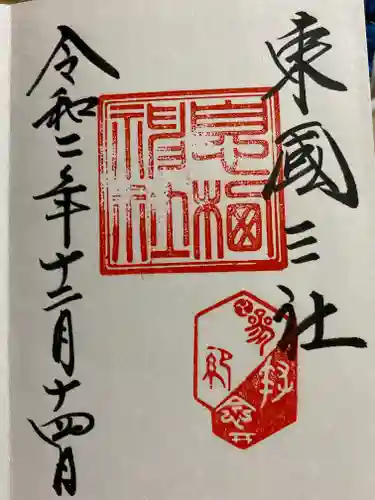 東國三社
息栖
神社
参拝
記念
令和二年十二月十四日